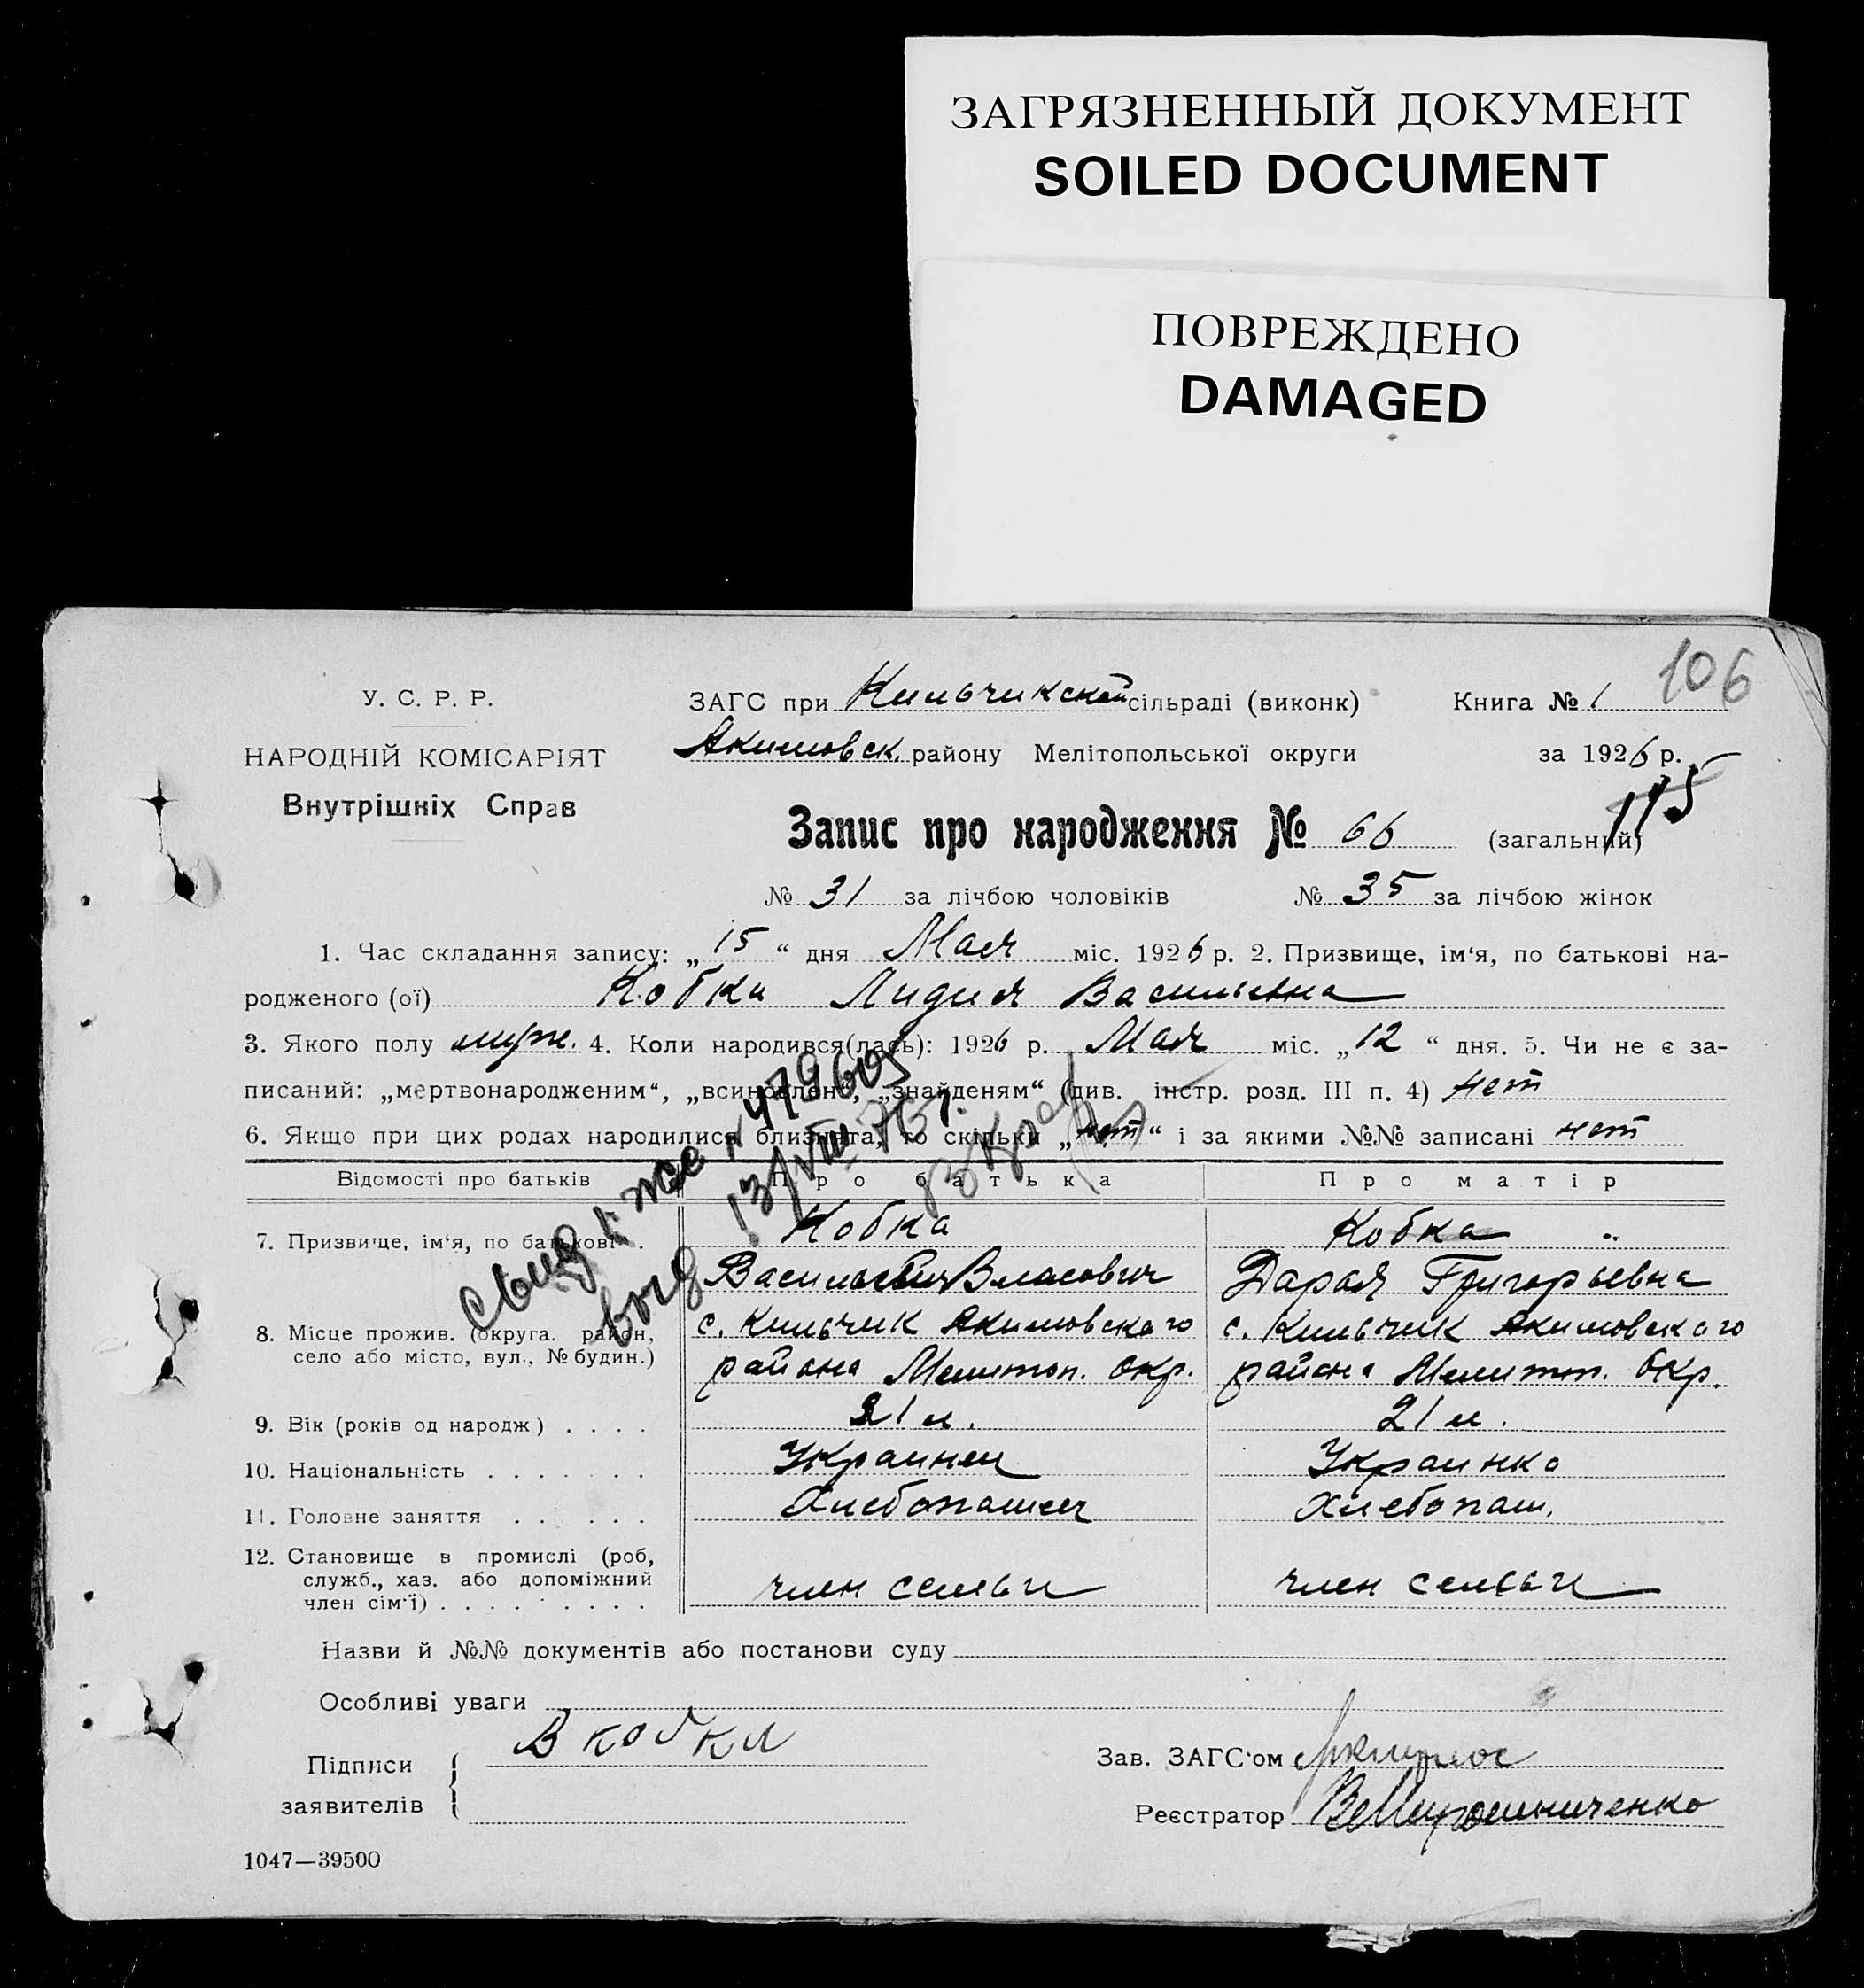 ЗАГРЯЗНЕННЫЙ ДОКУМЕНТ
SOILED DOCUMENT
ПОВРЕЖДЕНО
DAMAGED
106
У. С. Р. Р.
НАРОДНІЙ КОМІСАРІЯТ
Внутрішніх Справ
ЗАГС при Кильчикской сільраді (виконк) Книга № 1
Акимовск. району Мелітопольської округи за 1926 р.
115
Запис про народження № 66 (загальний)
№ 31 за лічбою чоловіків № 35 за лічбою жінок
1. Час складання запису: „15“ дня Мая міс. 1926 р. 2. Призвище, ім‘я, по батькові на-
родженого (ої) Кобка Лидия Васильевна
3. Якого полу муж. 4. Коли народився(лась): 1926 р. Мая міс. „12“ дня. 5. Чи не є за-
писаний: „мертвонародженим“, „всиновлен“, „знайденям“ (див. інстр. розд. III п. 4) нет
6. Якщо при цих родах народилися близнята, то скільки „нет“ і за якими №№ записані нет
Відомості про батьків Про батька Про матір
7. Призвище, ім‘я, по батькові . Кобка Кобка
Василь Власович Дарая Григорьевна
8. Місце прожив. (округа. район, с. Кильчик Акимовского с. Кильчик Акимовского
село або місто, вул., № будин.) района Мелитоп. Окр. района Мелитоп. Окр.
9. Вік (років од народж) . . . . 21 л. 21 л.
10. Національність . . . . . . . Украинец Украинка
11. Головне заняття . . . . . . Хлебопашец Хлебопаш.
12. Становище в промислі (роб,
служб., хаз. або допоміжний член семьи член семьи
член сім‘ї) . . . . . . . . .
13/VIII
Назви й №№ документів або постанови суду
Особливі уваги
Підписи В кобка
заявителів
Зав. ЗАГС‘ом
Реєстратор ВеМирошниченко
1047—39500